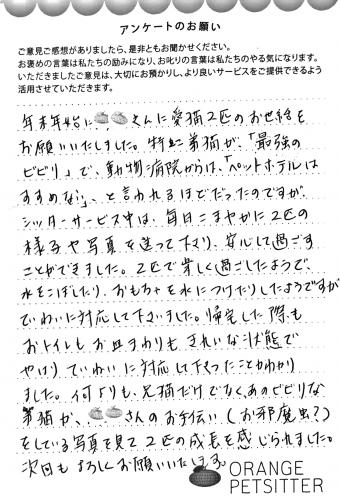 アンケートのお願い
ご意見ご感想がありましたら、是非ともお聞かせください。
お褒めの言葉は私たちの励みになり、お叱りの言葉は私たちのやる気になります。
いただきましたご意見は、大切にお預かりし、より良いサービスをご提供できるよう
活用させていただきます。
年末年始に さんに愛猫2匹のお世話を
お願いいたしました。特に弟猫が、「最強の
ビビリ」で、動物病院からは、「ペットホテルは
すすめない」、と言われるほどだったのですが、
シッターサービス中は、毎日こまやかに2匹の
様子や写真を送って下さり、安心して過ごす
ことができました。2匹で楽しく過ごしたようで、
水をこぼしたり、おもちゃを水につけたりしたようですが
ていねいに対応して下さいました。帰宅した際も
おトイレもお皿まわりもきれいな状態で
やはりていねいに対応して下さったことがわかり
ました。何よりも、兄猫だけでなく、あのビビリな
弟猫が、 さんのお手伝い(お邪魔虫?)
をしている写真を見て2匹の成長を感じられました。
次回もよろしくお願いいたします。
ORANGE
PETSITTER